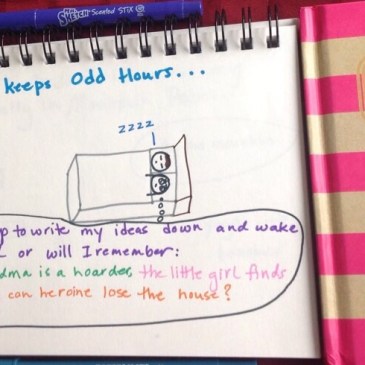 SKETCH Scented STIX
keeps Odd Hours...
zzzz
to write my ideas down and wake
or will I remember:
is a hoarder, the little girl finds
can heroine lose the house?